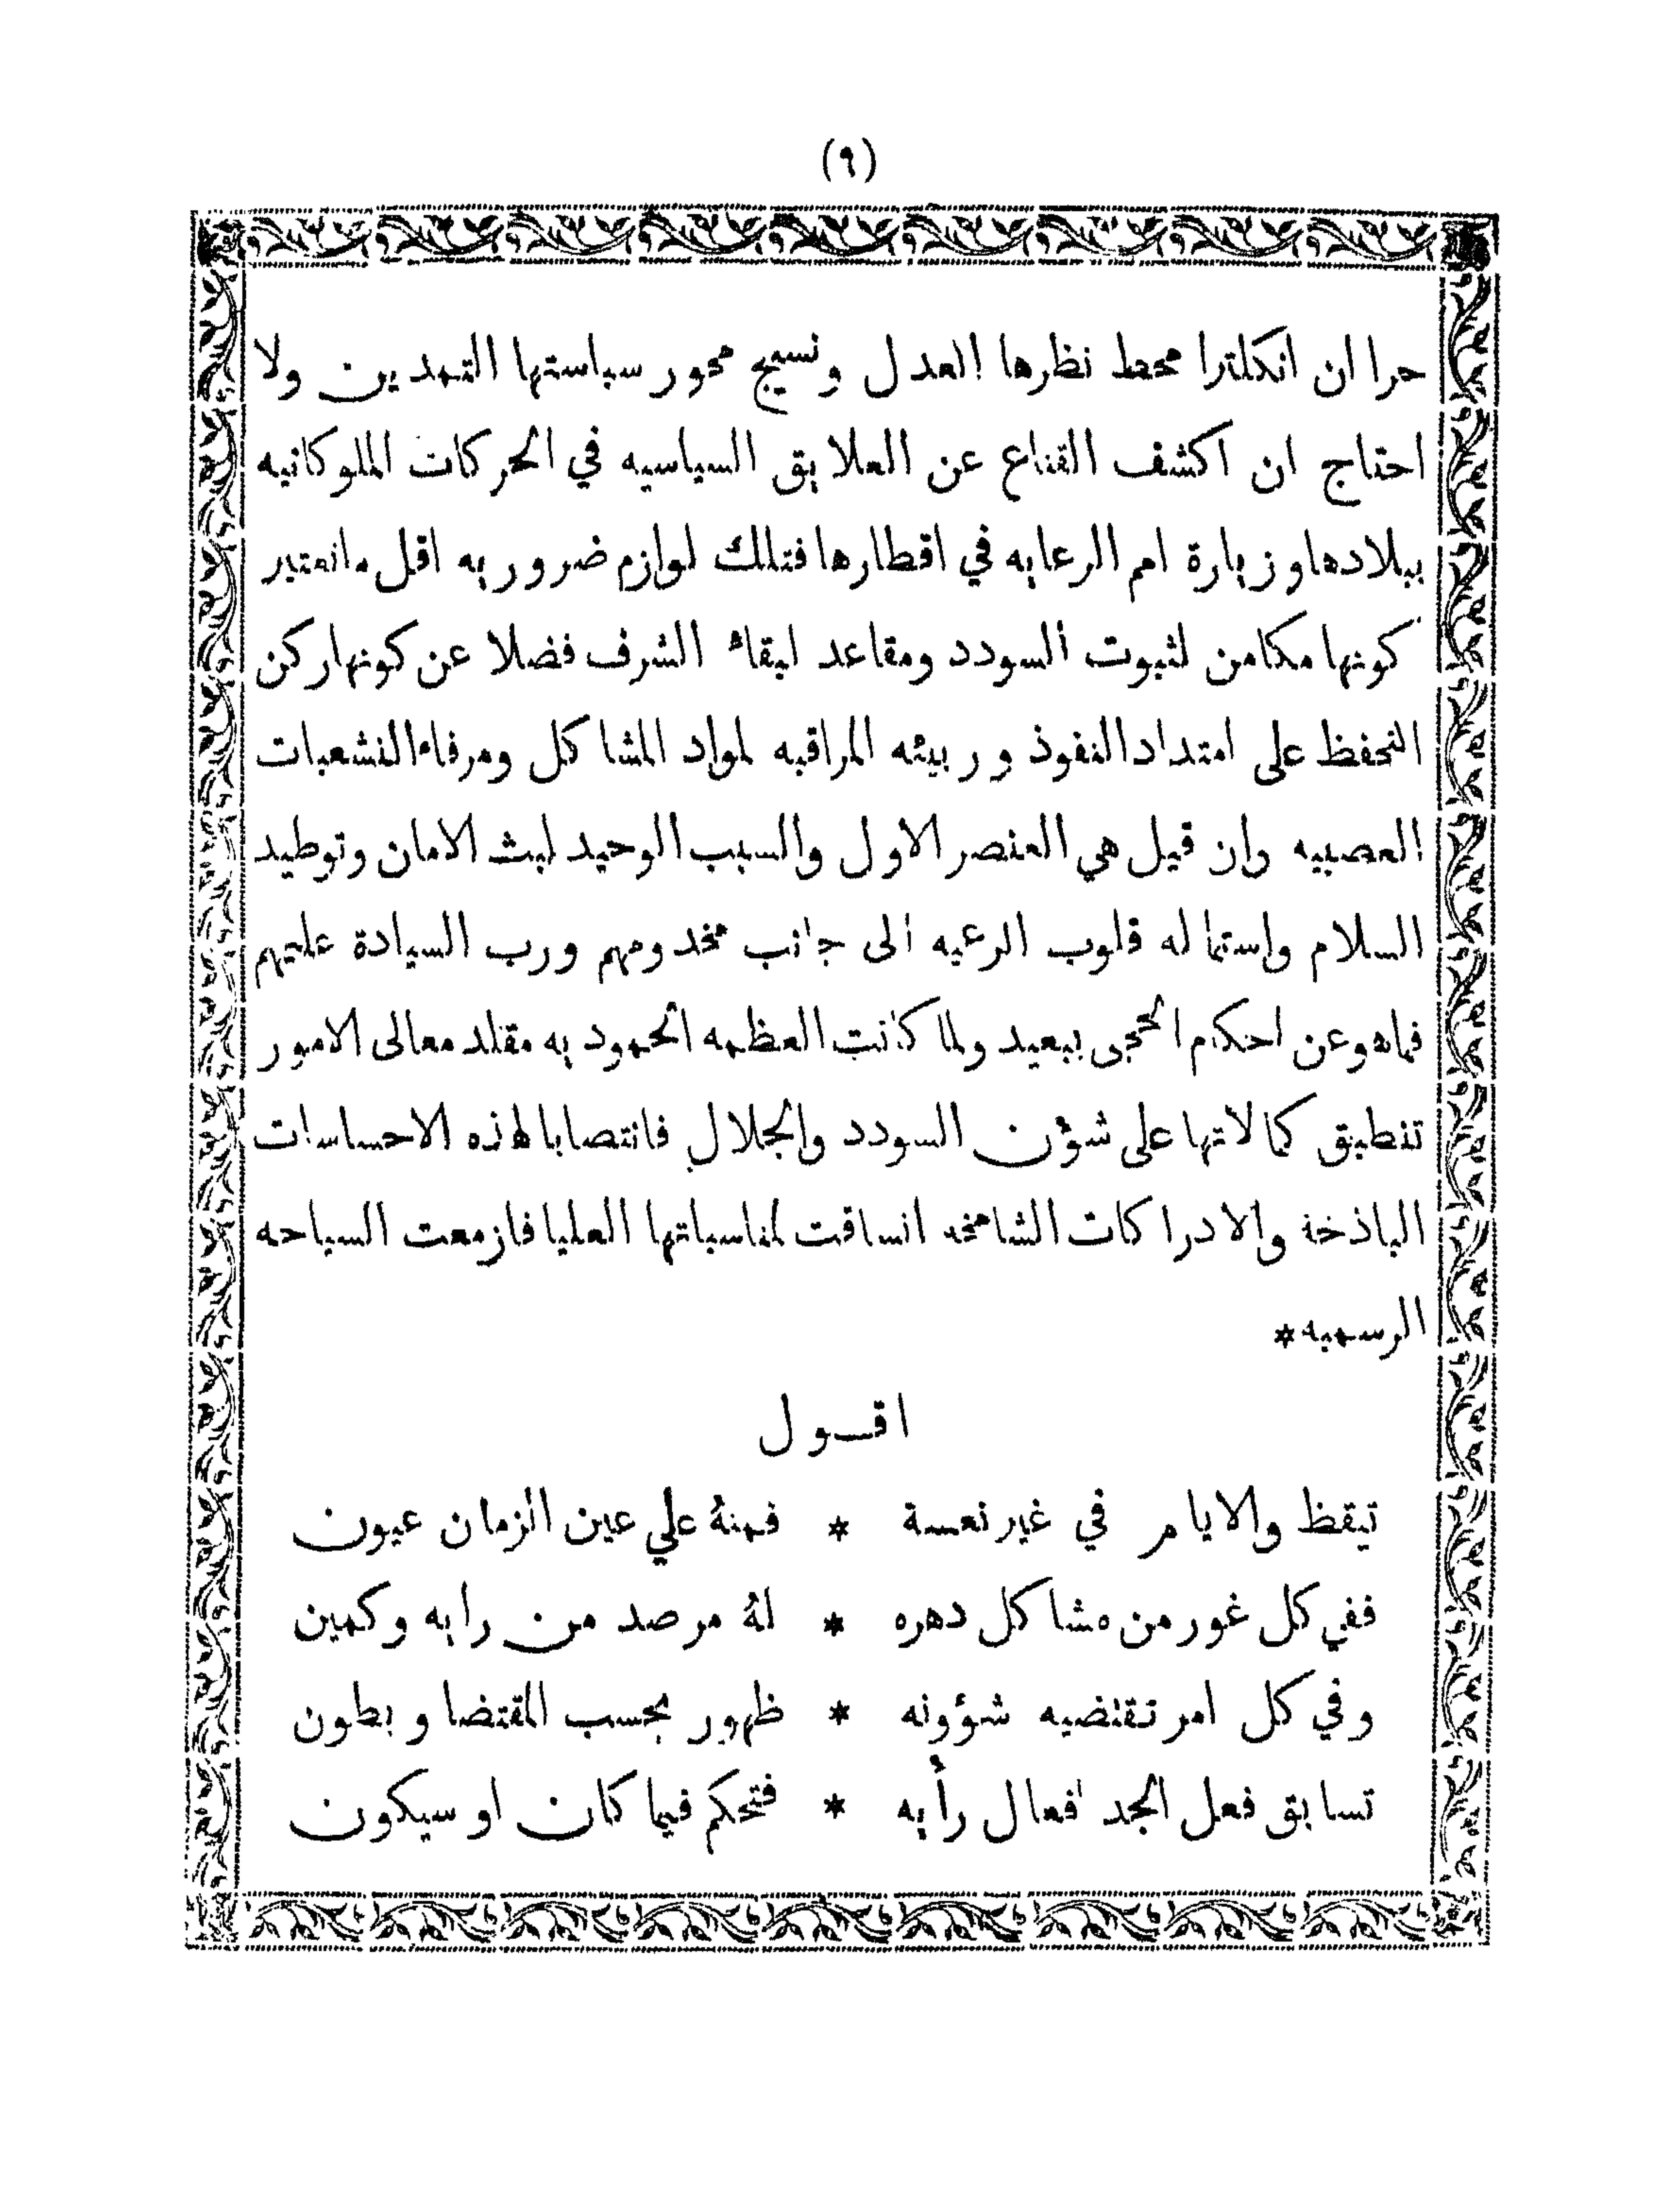 (٩)
حرا ان انكلترا محط نظرها العدل ونسيج محور سياستها التمدين ولا
احتاج ان اكشف القناع عن العلايق السياسيه في الحركات الملوكانيه
ببلادها وزيارة امم الرعايه في اقطارها فتلك لوازم ضروريه اقل مانعتبر
كونها مكامن لثبوت السودد ومقاعد لبقاء الشرف فضلا عن كونها ركن
التحفظ على امتداد النفوذ وربيئه المراقبه لمواد المشاكل ومرفاء التشعبات
العصبيه وان قيل هي العنصر الاول والسبب الوحيد لبث الامان وتوطيد
السلام واستماله قلوب الرعيه الى جانب مخدومهم ورب السيادة عليهم
فماهو عن احكام الحجى ببعيد ولما كانت العظمه المحمود به مقلد معالى الامور
تنطبق كمالاتها على شؤن السودد والجلال فانتصابا لهذه الاحساسات
الباذخة والادراكات الشامخه انساقت لمناسباتها العليا فازمعت السياحه
الرسميه *
اقول
تيقظ والايام في غير نعسة * فمنهُ علي عين الزمان عيون
ففي كل غور من مشاكل دهره * لهُ مرصد من رايه وكمين
وفي كل امر تقتضيه شؤونه * ظهور بحسب المقتضا وبطون
تسابق فعل الجد افعال رأيه * فتحكم فيما كان او سيكون